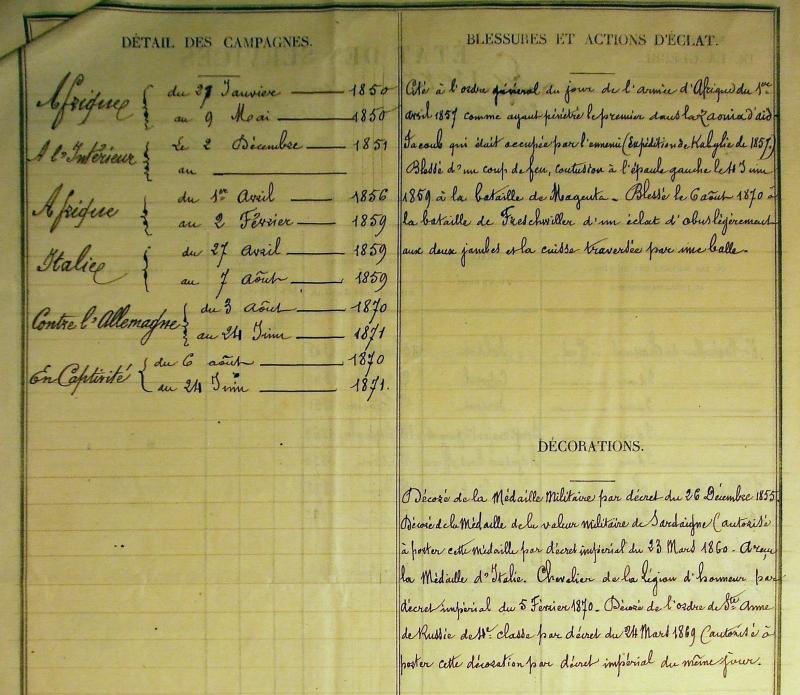 DÉTAIL DES CAMPAGNES.
Afrique { du 27 Janvier — 1850
au 9 Mai — 1850
A l'Intérieur { Le 2 Décembre — 1851
au —
Afrique { du 1er Avril — 1856
au 2 Février — 1859
Italie { du 27 Avril — 1859
au 7 Août — 1859
Contre l'Allemagne { du 3 Août — 1870
au 24 Juin — 1871
En Captivité { du 6 août — 1870
au 24 Juin — 1871.
BLESSURES ET ACTIONS D'ÉCLAT.
Cité à l'ordre général du jour de l'armée d'Afrique du 1er
avril 1857 comme ayant pénétré le premier dans la Zaouia d'aïd
Yacoub qui était occupée par l'ennemi (Expédition de Kabylie de 1857.)
Blessé d'un coup de feu, contusion à l'épaule gauche le 4 Juin
1859 à la bataille de Magenta - Blessé le 6 août 1870 à
la bataille de Freschwiller d'un éclat d'obus légèrement
aux deux jambes et la cuisse traversée par une balle.
DÉCORATIONS.
Décoré de la Médaille Militaire par décret du 26 Décembre 1855
Décoré de la Médaille de la valeur militaire de Sardaigne (autorisé
à porter cette médaille par décret impérial du 23 Mars 1860 - A reçu
la Médaille d'Italie. Chevalier de la Légion d'honneur par
décret impérial du 5 Février 1870 - Décoré de l'ordre de Ste Anne
de Russie de 4e classe par décret du 24 Mars 1869 (autorisé à
porter cette décoration par décret impérial du même jour.